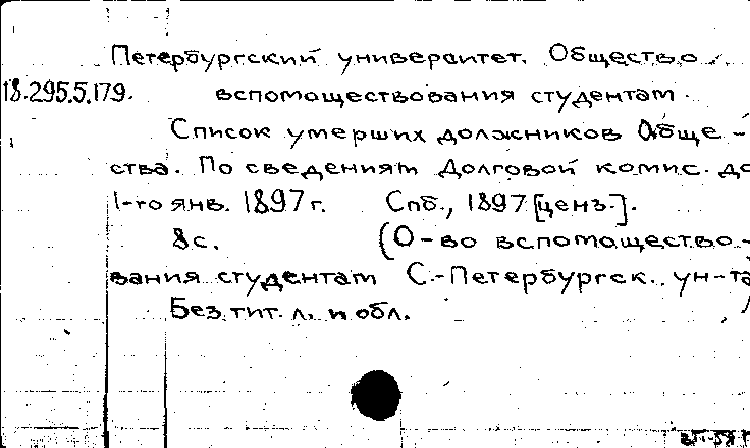 Петербургский университет. Общество
18.295.5.179. вспомоществования студентам.
Список умерших должников Обще-
ства. По сведениям Долговой комис. до
1-го янв. 1897 г. Спб., 1897 [ценз.].
8 с. (О-во вспомощество-
вания студентам С.-Петербургск. ун-та
Без тит. л. и обл.